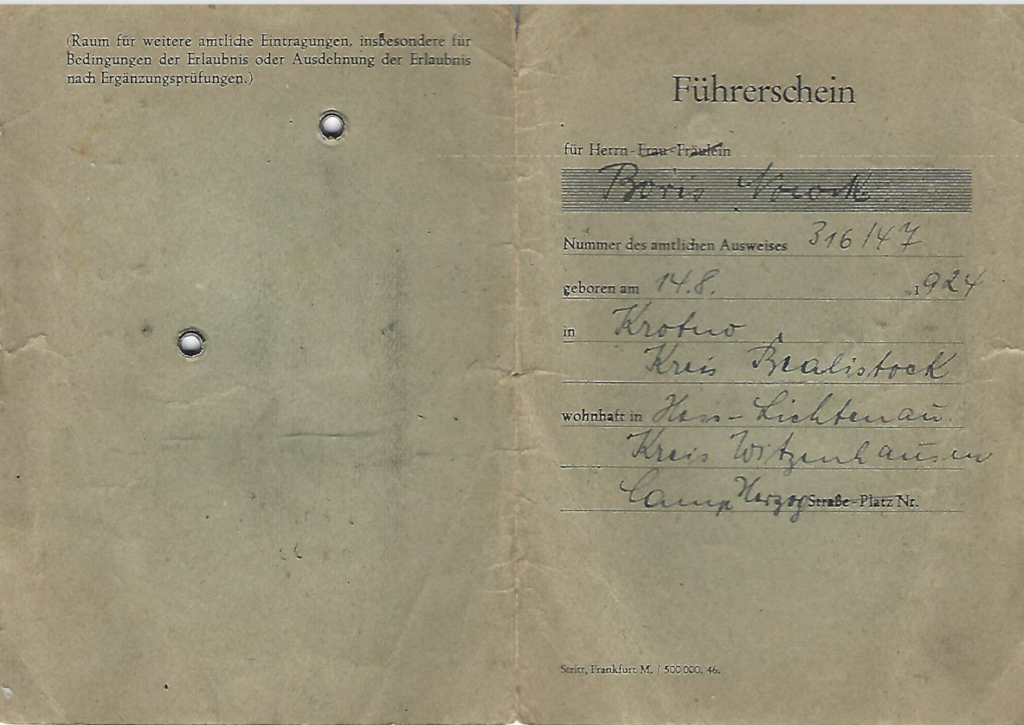 (Raum für weitere amtliche Eintragungen, insbesondere für
Bedingungen der Erlaubnis oder Ausdehnung der Erlaubnis
nach Ergänzungsprüfungen.)
Führerschein
für Herrn - Frau - Fräulein
Boris
Nummer des amtlichen Ausweises 316/47
geboren am 14.8. 1924
in Krotno
Kreis Bialistock
wohnhaft in Hess-Lichtenau
Kreis Witzenhausen
Camp Herzog Straße - Platz Nr.
Frankfurt M. / 500 000. 46.